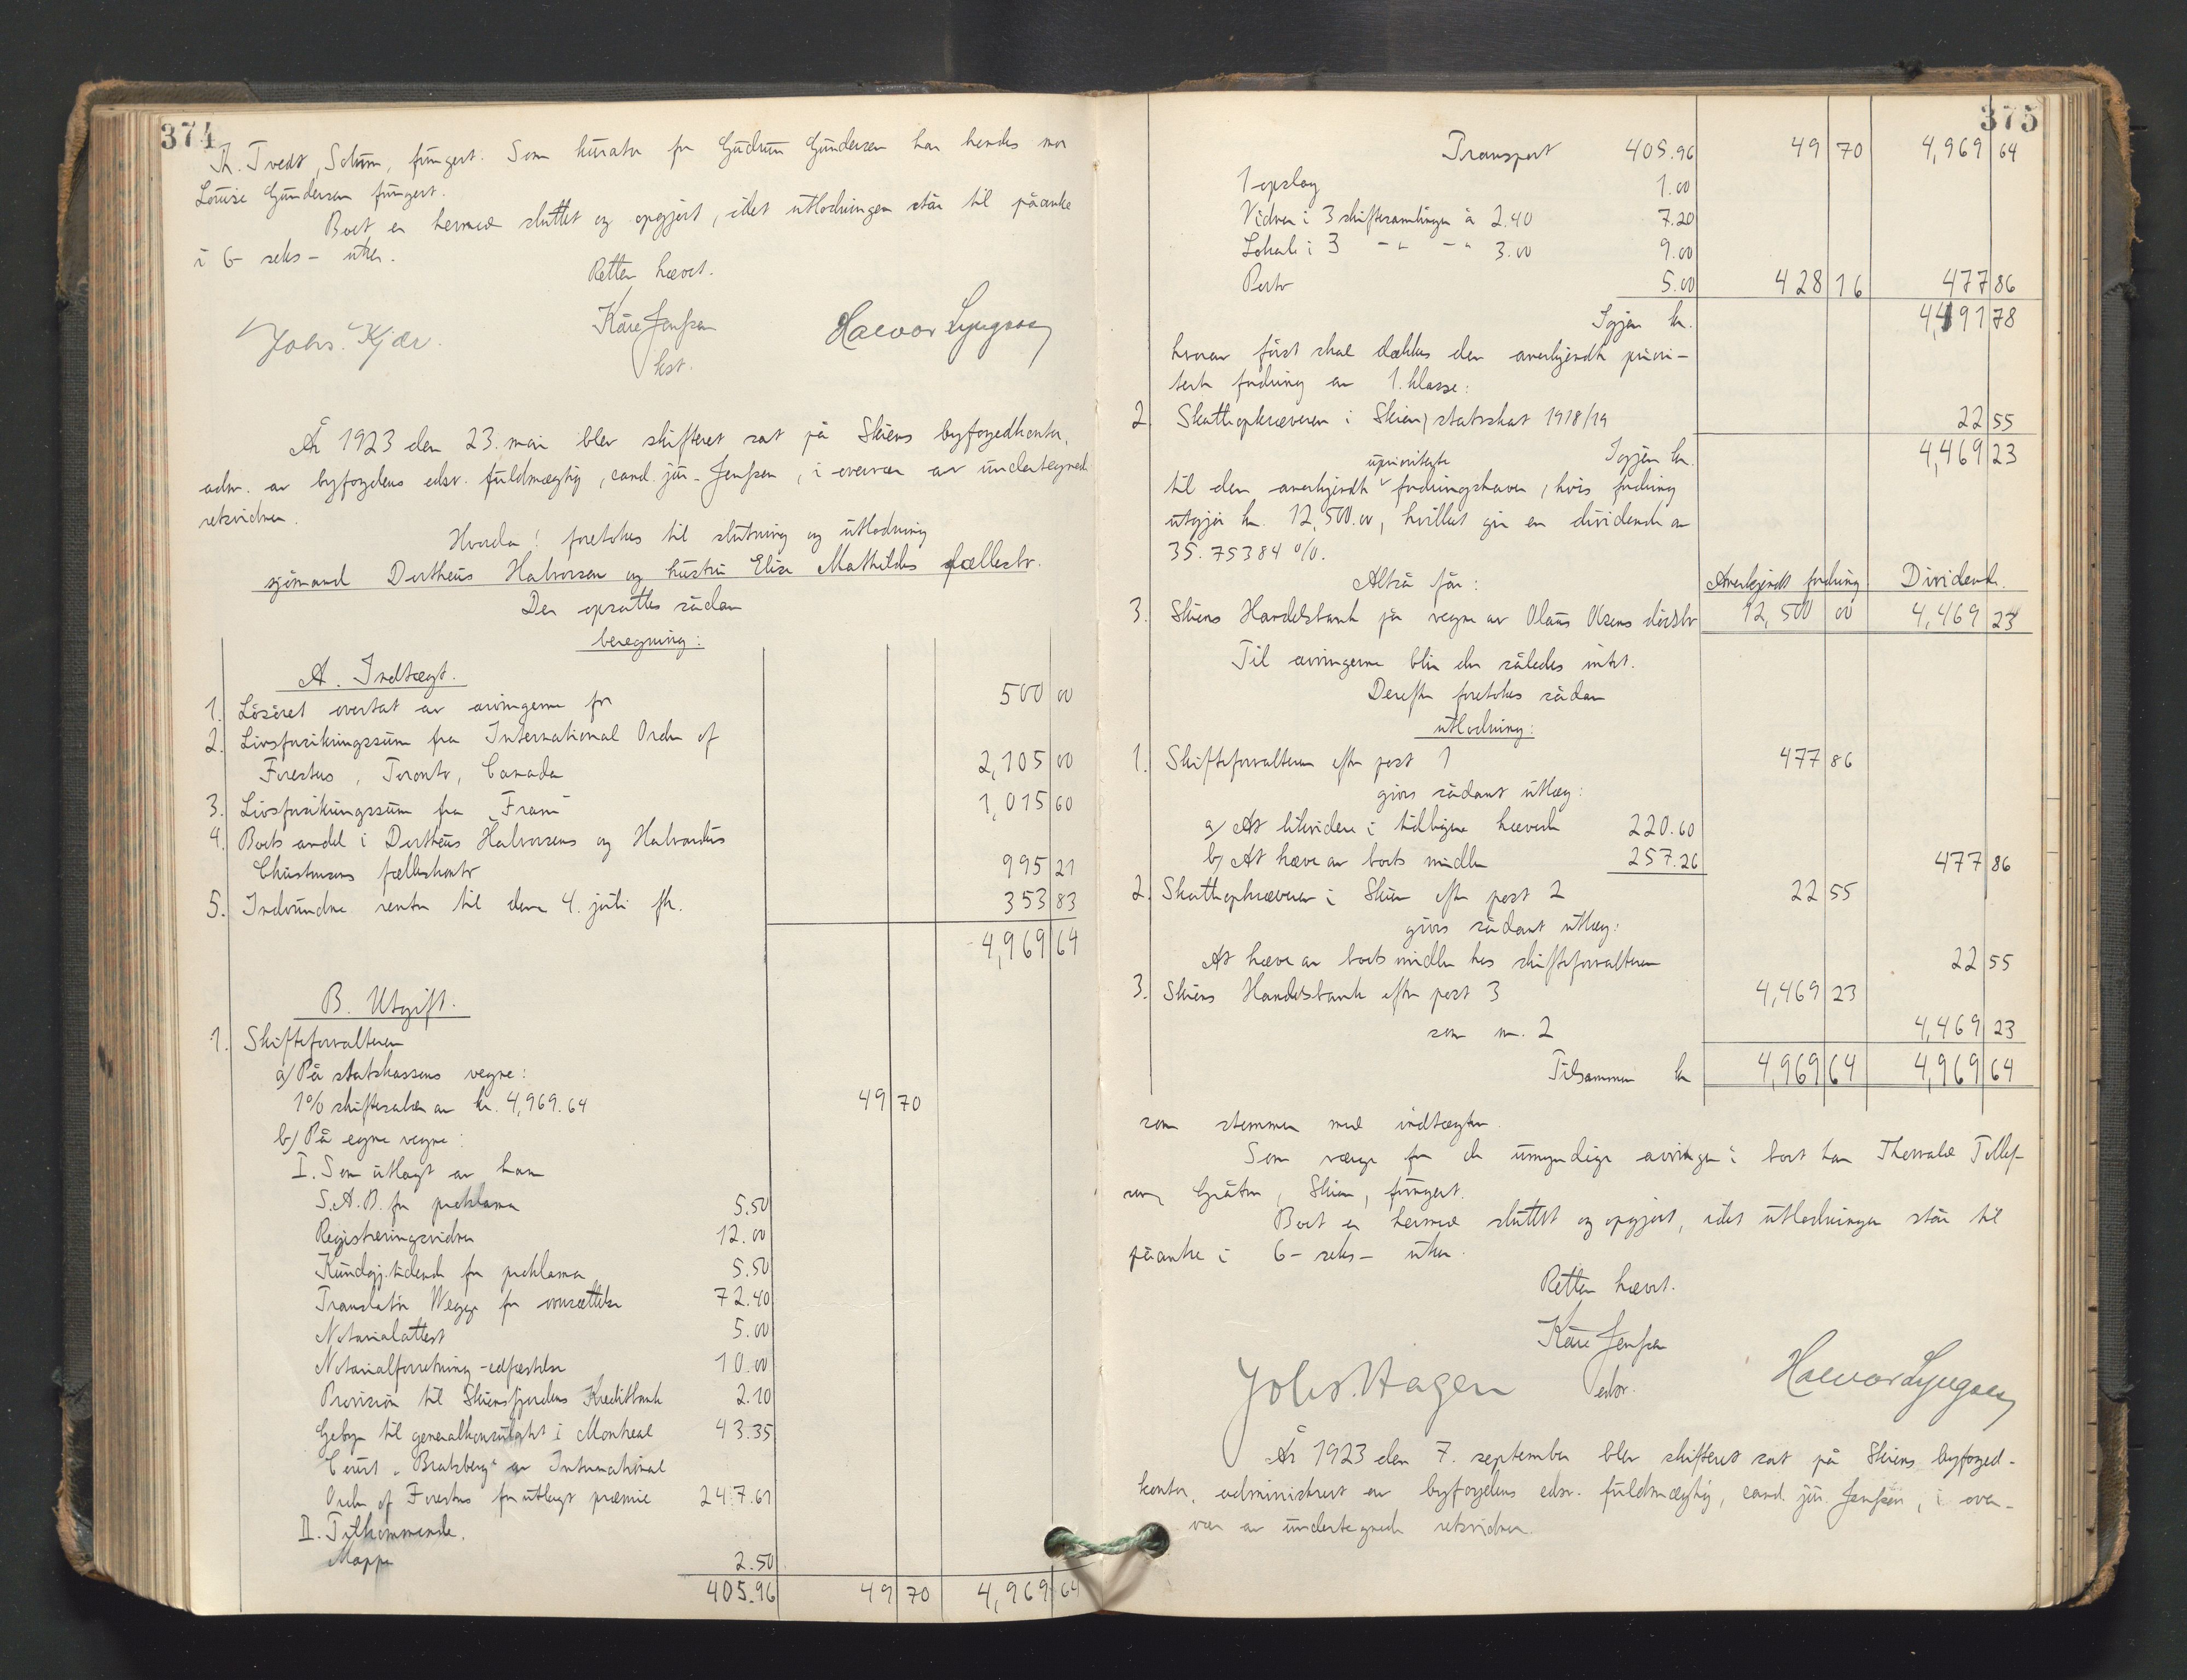 374
Th. Tvedt, Solum, fungert. Som kurator for Gudrun Gundersen har hendes mor
Louise Gundersen fungert.
Boet er hermed sluttet og opgjort, idet utlodningen står til påanke
i 6 - seks - uker.
Retten hævet.
Johs. Kjær. Kåre Jenssen Halvor Lyngaas
kst.
År 1923 den 23. mai blev skifteret sat på Skiens byfogedkontor,
adm. av byfogdens edsv. fuldmægtig, cand. jur. Jenssen, i overvær av undertegnede
retsvidner.
Hvorda! foretokes til slutning og utlodning
sjømand Dortheus Halvorsen og hustru Elise Mathildes fællesbo.
Der opsattes sådan
beregning:
A. Indtægt.
1. Løsøret overtat av arvingerne for 500 00
2. Livsforsikringssum fra International Order of
Foresters, Toronto, Canada 2,105 00
3. Livsforsikringssum fra "Fram" 1,015 60
4. Boets andel i Dortheus Halvorsens og Halvardus
Christensens felleskonto 995 21
5. Indvundne renter til den 4. juli fk. 353 83
4,969 64
B. Utgift.
1. Skifteforvalteren
a) På statskassens vegne:
1% skiftesalær av kr. 4,969.64 49 70
b) På egne vegne:
I. Som utlagt av ham
S.A.B. for proklama 5.50
Registreringsvidner 12.00
Kundgj.tidende for proklama 5.50
Translatør Wegge for oversættelse 72.40
Notarialattest 5.00
Notarialforretning - edfæstelse 10.00
Provision til Skiensfjordens Kreditbank 2.10
Gebyr til generalkonsulatet i Montreal 43.35
Court "Bratsberg" av International
Order of Foresters for utlagt præmie 247.61
II. Tilkommende.
Mappe 2.50
405.96 49 70 4,969 64
375
Transport 405.96 49 70 4,969 64
1 opslag 1.00
Vidner i 3 skiftesamlinger à 2.40 7.20
Lokale i 3 -"- -"- 3.00 9.00
Porto 5.00 428 16 477 86
Igjen kr. 4,491 78
hvorav først skal dækkes den anerkjendte priori-
terte fordring av 1. klasse:
2. Skatteopkræveren i Skien, statsskat 1918/19 22 55
Igjen kr. 4,469 23
til den anerkjendte uprioriterte fordringshaver, hvis fordring
utgjør kr. 12,500.00, hvilket gir en dividende av
35.75384 %.
Altså får: Anerkjendt fordring Dividende.
3. Skiens Handelsbank på vegne av Olaus Olsens dødsbo 12,500 00 4,469 23
Til arvingerne blir der således intet.
Derefter foretokes sådan
utlodning:
1. Skifteforvalteren efter post 1 477 86
givs sådant utlæg:
a) At likvidere i tidligere hævede 220.60
b) At hæve av boets midler 257.26 477 86
2. Skatteopkræveren i Skien efter post 2 22 55
givs sådant utlæg:
At hæve av boets midler hos skifteforvalteren 22 55
3. Skiens Handelsbank efter post 3 4,469 23
som nr. 2 4,469 23
Tilsammen kr 4,969 64 4,969 64
som stemmer med indtægten.
Som værge for de umyndige arvinger i boet har Thorvald Tollef-
sen, Gråten, Skien, fungert.
Boet er hermed sluttet og opgjort, idet utlodningen står til
påanke i 6 - seks - uker.
Retten hævet.
Kåre Jenssen
Johs. Hagen edsv. Halvor Lyngaas
År 1923 den 7. september blev skifteret sat på Skiens byfoged-
kontor, administrert av byfogdens edsv. fuldmægtig, cand. jur. Jenssen, i over-
vær av undertegnede retsvidner.